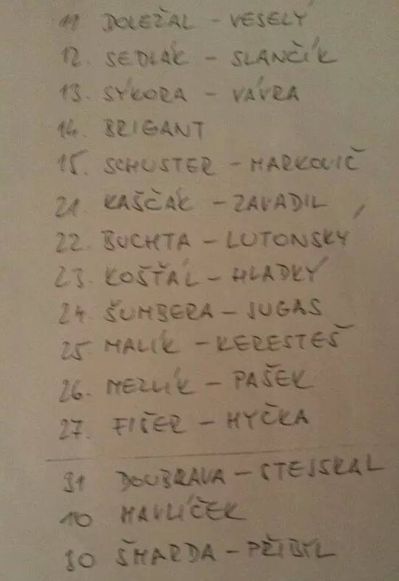 11 DOLEŽAL - VESELÝ
12. SEDLÁK - SLANČÍK
13. SÝKORA - VÁVRA
14. BRIGANT
15. SCHUSTER - MARKOVIČ
21. KAŠČÁK - ZAVADIL
22. BUCHTA - LUTONSKÝ
23. KOŠŤÁL - HLADKÝ
24. ŠUMBERA - JUGAS
25. MALÍK - KERESTEŠ
26. MEZLÍK - PAŠEK
27. FIŠER - HYČKA
31 DOUBRAVA - STEJSKAL
10 HAVLÍČEK
30 ŠMARDA - PŘIBYL